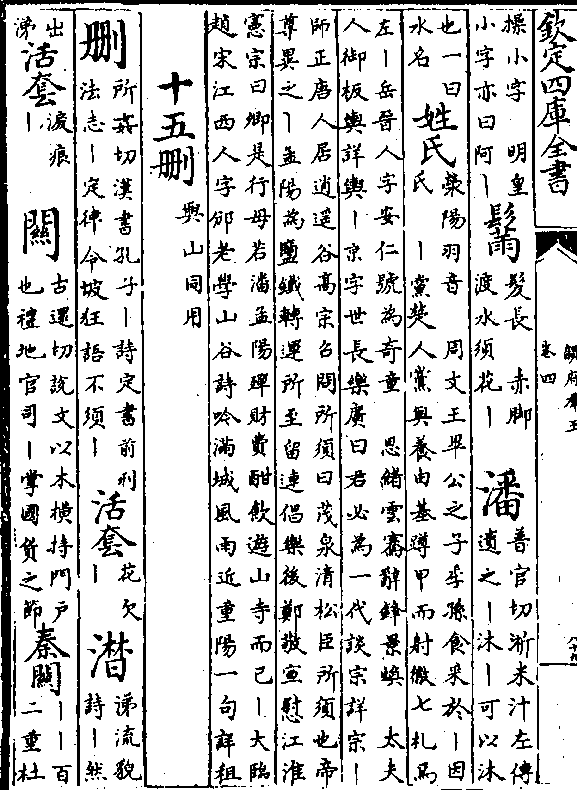 欽定四庫全書
卷四
操小字 明皇
小字亦曰阿丨
鬗
髮長 赤脚
渡水須花丨
潘
普官切淅米汁左傳
遺之丨沐丨可以沐
也一曰
水名
姓氏
滎陽羽音 周文王畢公之子季孫食采於丨因
氏 丨黨楚人黨與養由基蹲甲而射徹七札焉
左丨岳晉人字安仁號為奇童 思緒雲騫辭鋒景煥 太夫
人御板輿詳輿丨京字世長樂廣曰君必為一代談宗詳宗丨
師正唐人居逍遥谷高宗召問所須曰茂泉清松臣所須也帝
尊異之丨孟陽為鹽鐵轉運所至留連倡樂後鄭敬宣慰江淮
憲宗曰卿是行毋若潘孟陽殫財費酣飲遊山寺而已丨大臨
趙宋江西人字邠老學山谷詩吟滿城風雨近重陽一句詳租
十五刪
與山同用
刪
所姦切漢書孔子丨詩定書前刑
法志丨定律令坡狂語不須丨
活套
花欠
丨
潸
涕流貌
詩丨然
出
涕
活套
淚痕
丨
關
古還切說文以木橫持門戶
也禮地官司丨掌國貨之節
秦關
丨丨百
二重杜